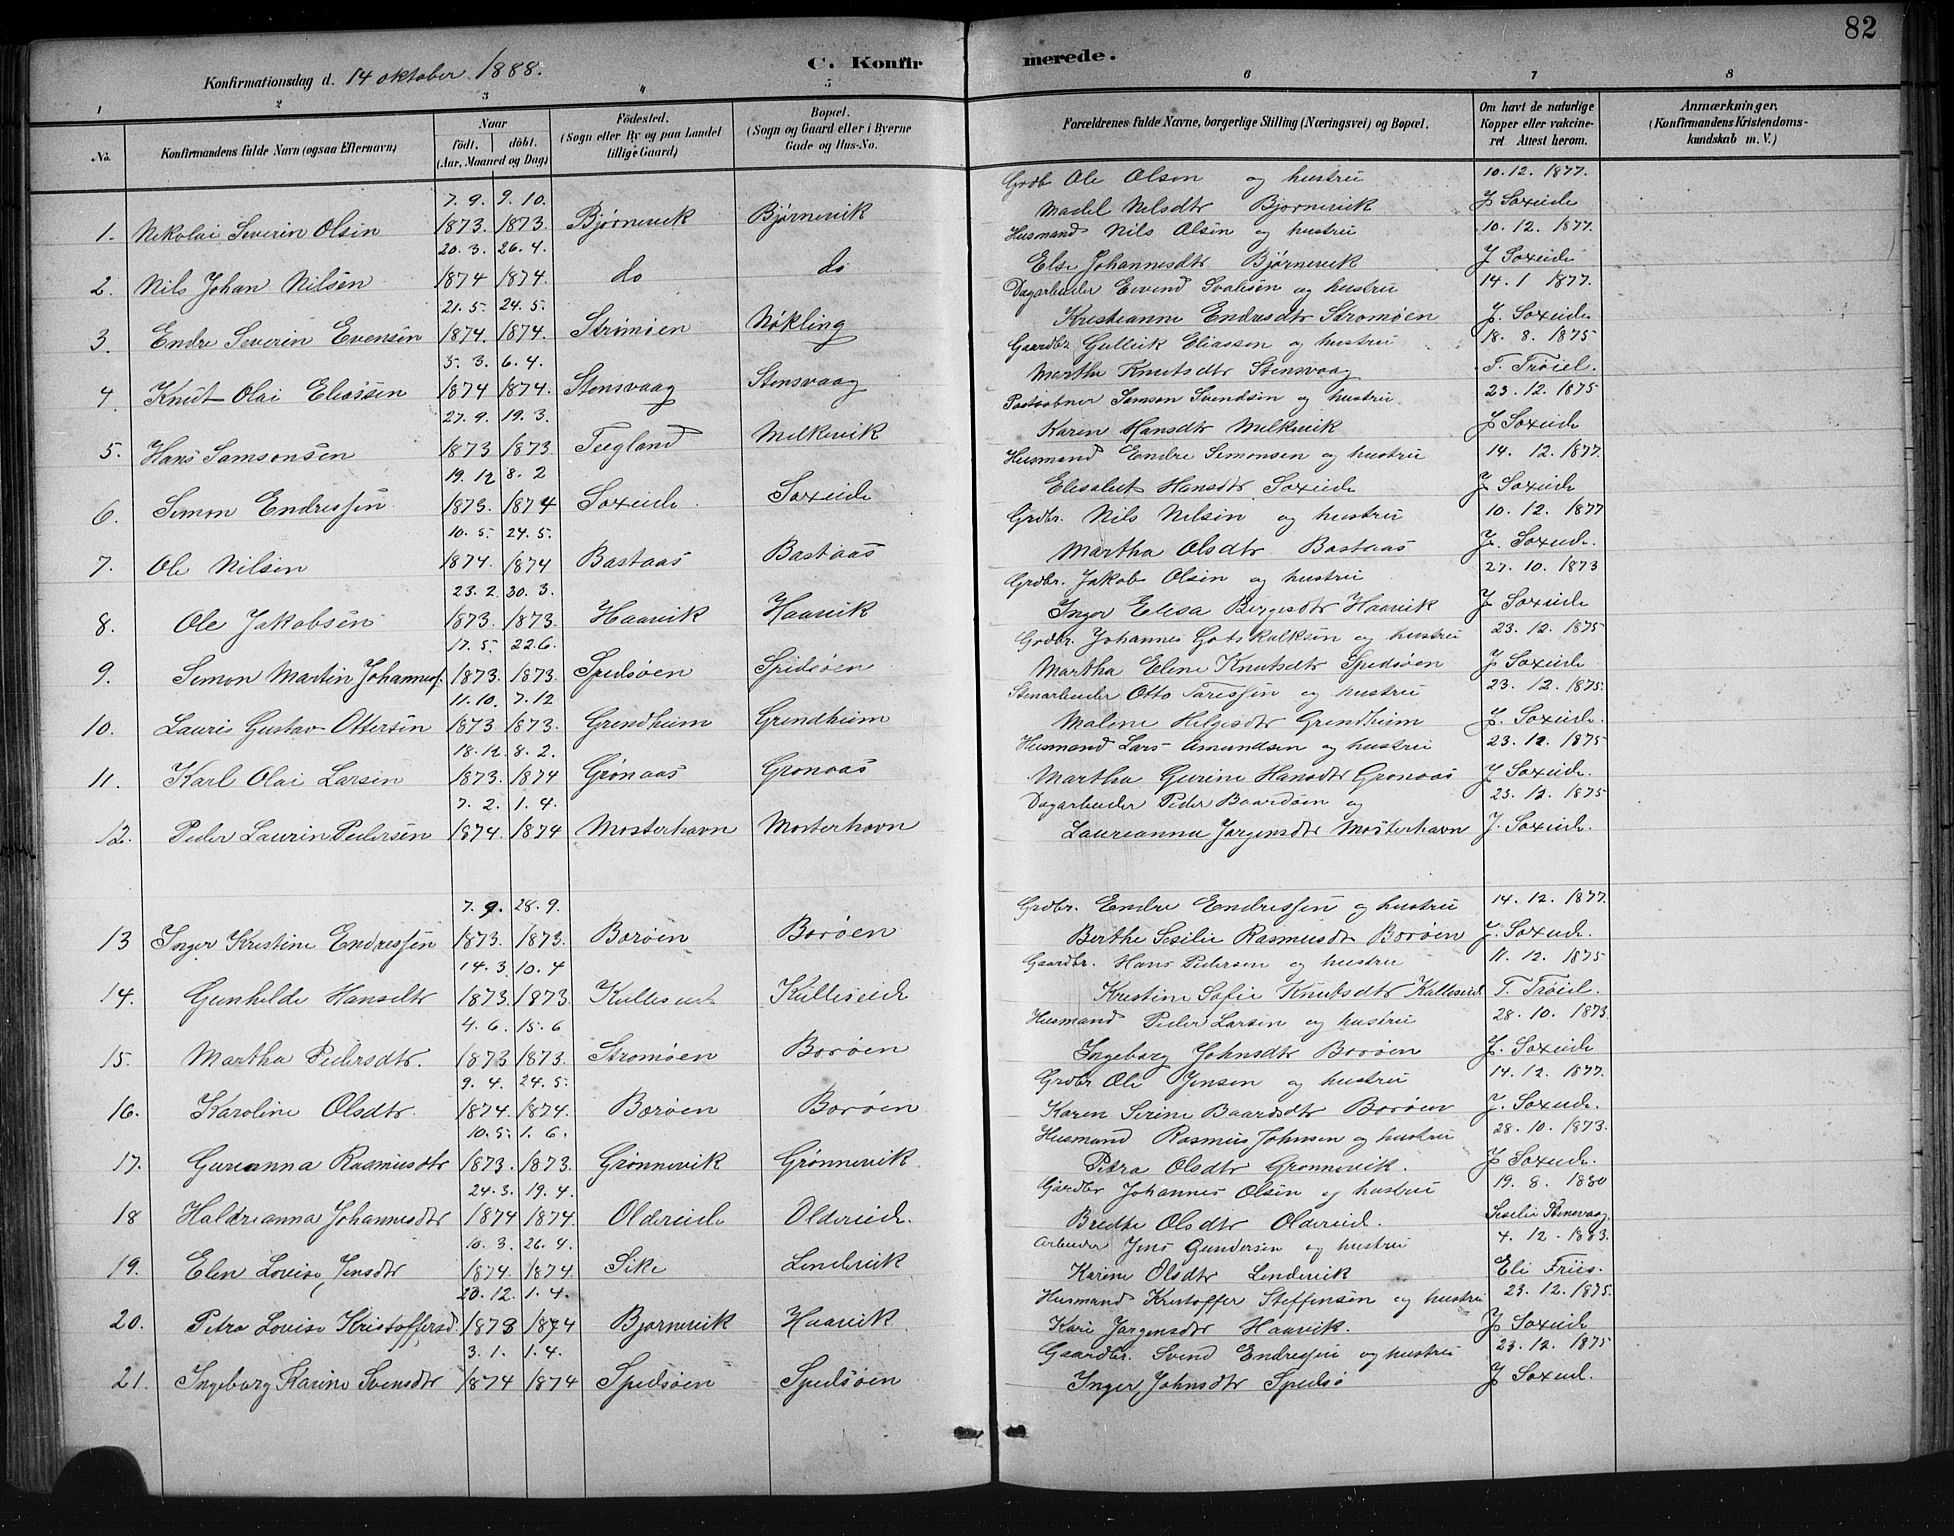 82
C. Konfirmerede.
Konfirmationsdag d. 14 oktober 1888.
1 2 3 4 5 6 7 8
No. Konfirmandens fulde Navn (ogsaa Efternavn) Naar født. døbt. (Aar, Maaned og Dag) Fødested. (Sogn eller By og paa Landet tillige Gaard) Bopæl. (Sogn og Gaard eller i Byerne Gade og Hus-No. Forældrenes fulde Navne, borgerlige Stilling (Næringsvei) og Bopæl. Om havt de naturlige Kopper eller vakcineret Attest herom. Anmærkninger. (Konfirmandens Kristendomskundskab m. V.)
7. 9. 9. 10. Grdb Ole Olsen og hustru 10. 12. 1877.
1. Nikolai Severin Olsen 1873. 1873. Bjørnevik Bjørnevik Madel Nilsdtr Bjørnevik J Soxeide
20. 3. 26. 4. Husmand Nils Olsen og hustru 10. 12. 1877.
2. Nils Johan Nilsen 1874 1874. do do Else Johannesdtr Bjørnevik J Soxeide
21. 5. 24. 5. Dagarbeider Eivend og hustru 14. 1 1877.
3. Endre Severin Evensen 1874. 1874. Strømøen Nøkling Kristianne Endresdtr Strømøen J. Soxeide
5. 3. 6. 4. Gaardbr. Gullik Eliassen og hustru 18. 8. 1875
4. Knut Olai Eliassen 1874 1874. Stensvaag Stensvaag Martha Knutsdtr Stensvaag T. Trøiel.
27. 9. 19. 3. Postaabner Samson Svendsen og hustru 23. 12. 1875
5. Hans Samsonsen 1873 1873. Teigland Melkevik Karen Hansdtr Melkevik J Soxeide
19. 12 8. 2 Husmand Endre Simonsen og hustru 14. 12. 1877.
6. Simon Endressen 1873. 1874 Soxeide Soxeide Elisabet Hansdtr Soxeide J Soxeide
10. 5. 24. 5. Grdbr. Nils Nilsen og hustru 10. 12. 1877
7. Ole Nilsen 1874. 1874 Bastaas Bastaas Martha Olsdtr Bastaas J. Soxeide.
23. 2. 30. 3. Grdbr. Jakob Olsen og hustru 27. 10. 1873
8. Ole Jakobsen 1873. 1873. Haavik Haavik Inger Elisa Bergesdtr Haavik J Soxeide
17. 5. 22. 6. Grdbr. Johannes Gotskalksen og hustru 23. 12. 1875
9. Simon Martin Johanness. 1873. 1873. Spidsøen Spidsøen Martha Elene Knutsdtr Spidsøen J Soxeide
11. 10. 7. 12 Stenarbeider Otto og hustru 23. 12. 1875.
10. Lauris Gustav Ottersen 1873 1873. Grendheim Grendheim Maline Helgesdtr Grendheim J. Soxeide.
18. 12 8. 2. Husmand Lars Amundsen og hustru 23. 12. 1875
11. Karl Olai Larsen 1873. 1874 Grønaas Grønaas Martha Gurine Hansdtr Grønaas J Soxeide.
7. 2. 1. 4. Dagarbeider Peder Baardsen og 23. 12. 1875
12. Peder Laurin Pedersen 1874. 1874 Mosterhavn Mosterhavn Laurianna Jørgensdtr Mosterhavn J. Soxeide.
7. 9. 28. 9. Grdbr. Endre Endressen og hustru 14. 12. 1877.
13 Inger Kristine Endressen 1873. 1873. Borøen Borøen Berthe Sesilie Rasmusdtr Borøen J. Soxeide.
14. 3. 10. 4 Gaardbr. Hans Pedersen og hustru 11. 12. 1875
14. Gunhilde Hansdtr 1873. 1873. Kulleseide Kulleseide Kristine Sofie Knutsdtr Kulleseid T. Trøiel.
4. 6. 15. 6 Husmand Peder Larsen og hustru 28. 10. 1873.
15. Martha Pedersdtr. 1873 1873. Strømøen Borøen Ingeborg Johnsdtr Borøen J. Soxeide
9. 4. 24. 5. Grdbr Ole Jensen og hustru 14. 12. 1877.
16. Karoline Olsdtr. 1874. 1874. Borøen Borøen Karen Serine Baardsdtr Borøen J. Soxeide.
10. 5. 1. 6. Husmand Rasmus Johnsen og hustru 28. 10. 1873.
17. Gurianna Rasmusdtr 1873. 1873. Grønnevik Grønnevik. Petra Olsdtr Grønnevik. J Soxeide.
24. 3. 19. 4. Gaardbr Johannes Olsen og hustru 19. 8. 1880
18 Haldrianna Johannesdtr 1874 1874. Oldereide Oldereide. Brethe Olsdtr Oldereid. Sesilie Stensvaag.
10. 3. 26. 4. Arbeider Jens Gundersen og hustru 4. 12. 1883.
19. Elen Lovise Jensdtr 1874. 1874 Sike Lendevik Karine Olsdtr Lendevik Eli Friis.
20. 12. 1. 4. Husmand Kristoffer Steffensen og hustru 23. 12. 1875.
20. Petra Lovise Kristoffersd. 1873 1874 Bjørnevik Haavik Kari Jørgensdtr Haavik. J Soxeide
3. 1. 1. 4. Gaardbr. Svend Endresen og hustru 23. 12. 1875
21. Ingeborg Karine Svensdtr 1874 1874 Spidsøen Spidsøen Inger Johnsdtr Spidsø J Soxeid.